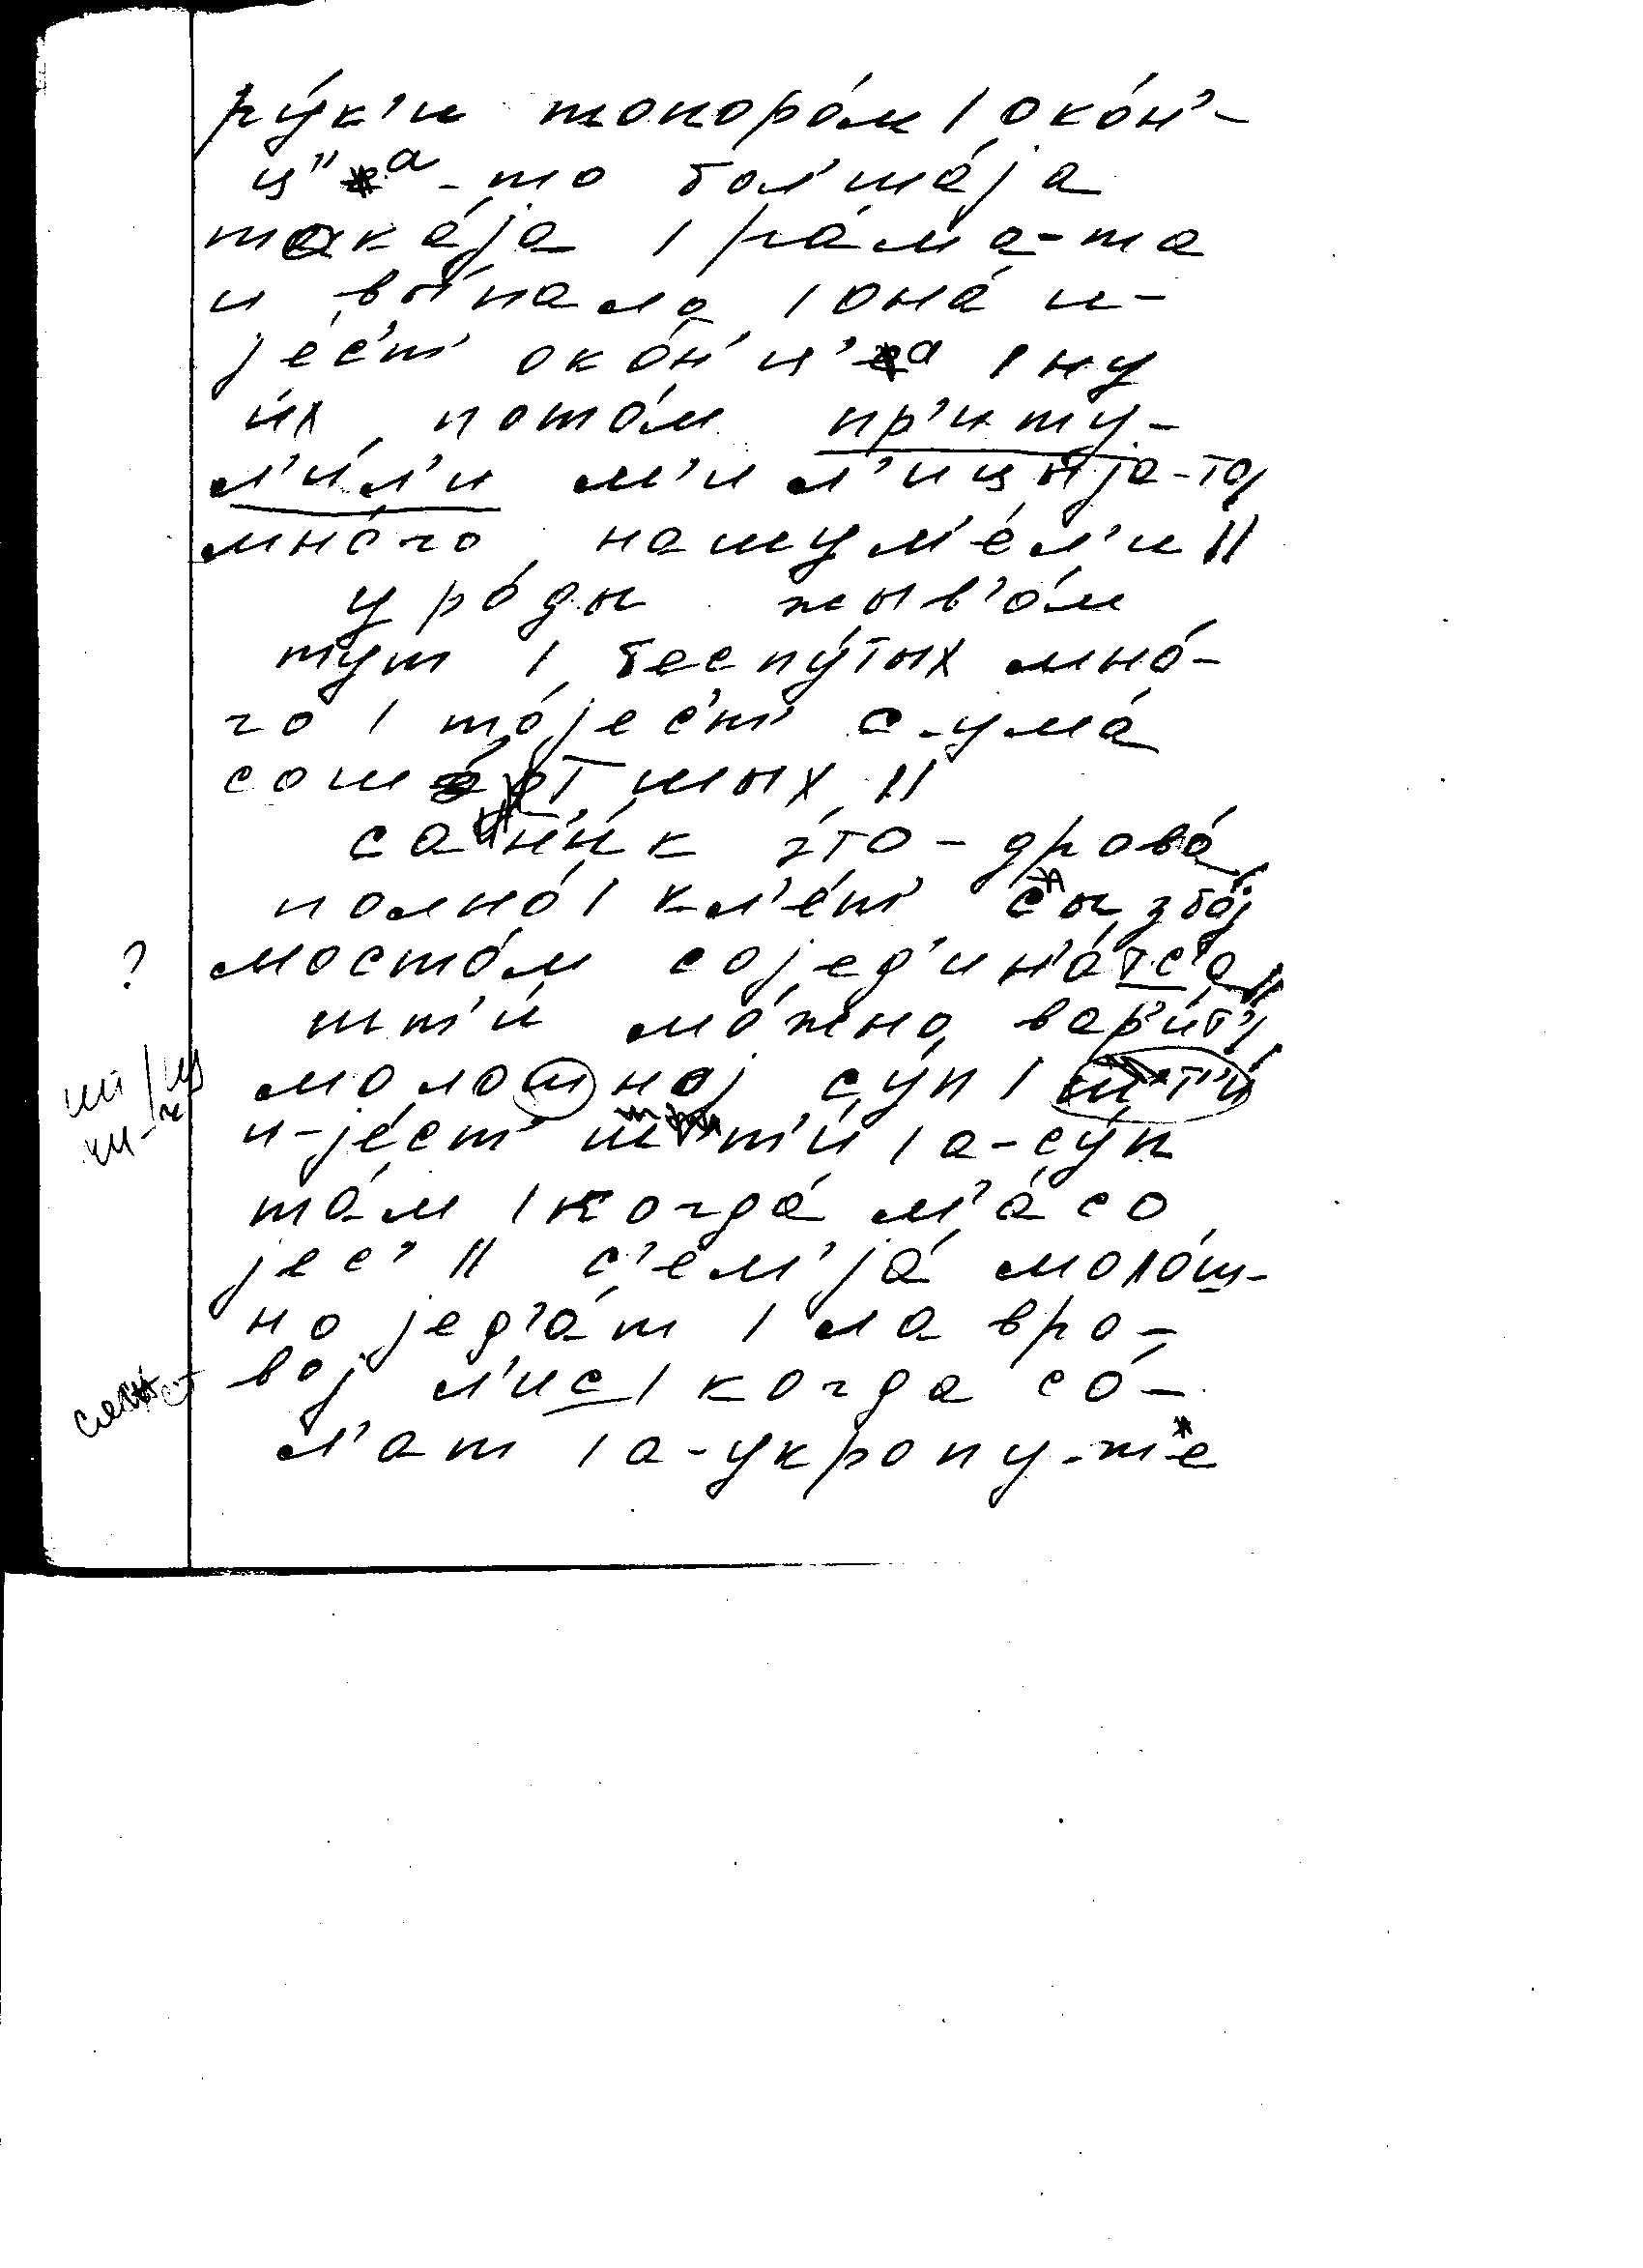 ру́к'и топоро́м / око́н'-
ц''а-то бол'ша́jа
така́jа / ра́ма-та
и вы́пала / она́ и-
jе́с'т' око́н'ц'а / ну
и́х пото́м пр'иту-
л'и́л'и м'ил'ицыjа-то /
мно́го нашум'е́л'и //
уро́ды жыв'о́м
ту́т / беспу́тых мно́-
го / то́jес'т' с-ума́
сошо́тшых //
са́н'ик э́то-дрова́
полно́ / кл'е́т' сызбо́j
мосто́м соjед'ин'а́тс'а //
шт'и́ мо́жно вар'и́т' /
молошноj су́п / шт'и́
и-jе́ст' шт'и́ / а-су́п
та́м / когда́ м'а́со
jес' // с'ем'jа́ моло́ш-
но jед'а́т / лавро-
воj л'ис / когда со́-
л'ат / а-укропу-т'е
?